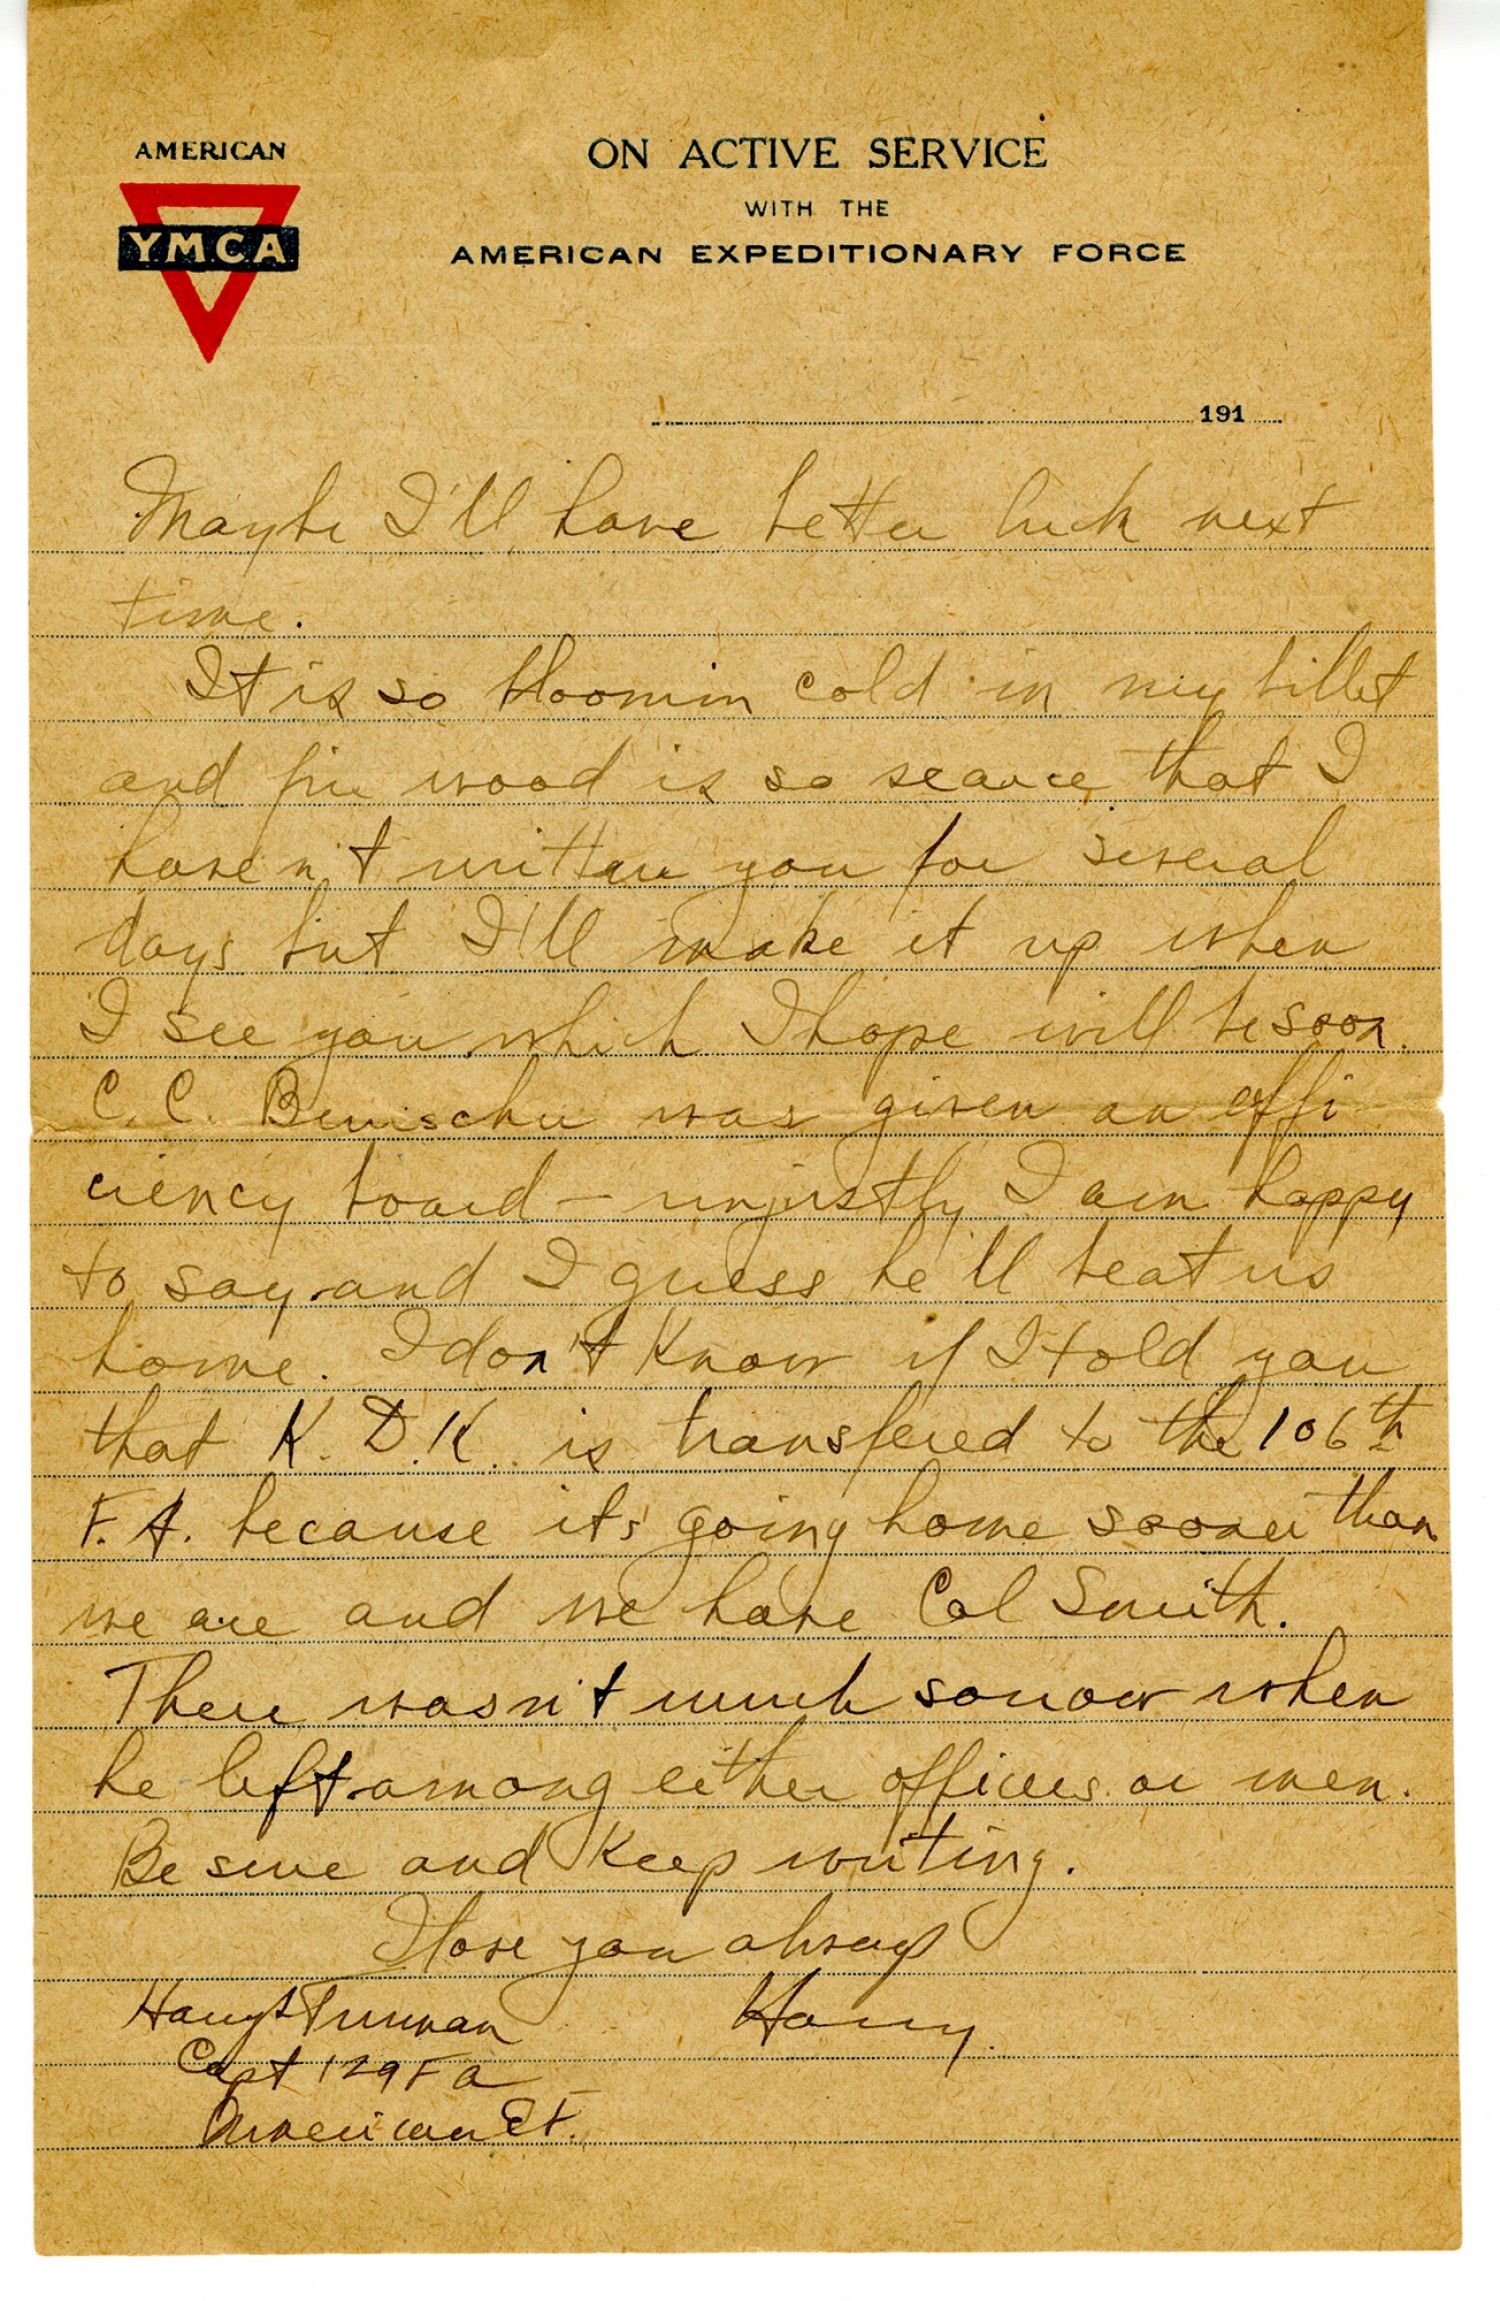 AMERICAN
YMCA
ON ACTIVE SERVICE
WITH THE
AMERICAN EXPEDITIONARY FORCE
191
Maybe I'll have better luck next
time.
It is so bloomin cold in my billet
and fire wood is so scarce that I
haven't written you for several
days but I'll make it up when
I see you which I hope will be soon.
C. C. was given an effi
ciency board – unjustly I am happy
to say and I guess he'll beat us
home. I don't know if I told you
that K. D. K. is transfered to the 106th
F. A. because its going home sooner than
we are and we have Col Smith.
There wasn't much sorrow when
he left among either officers or men.
Be sure and keep writing.
I love you always
Harry.
Harry S Truman
Capt 129 F A
American E F.